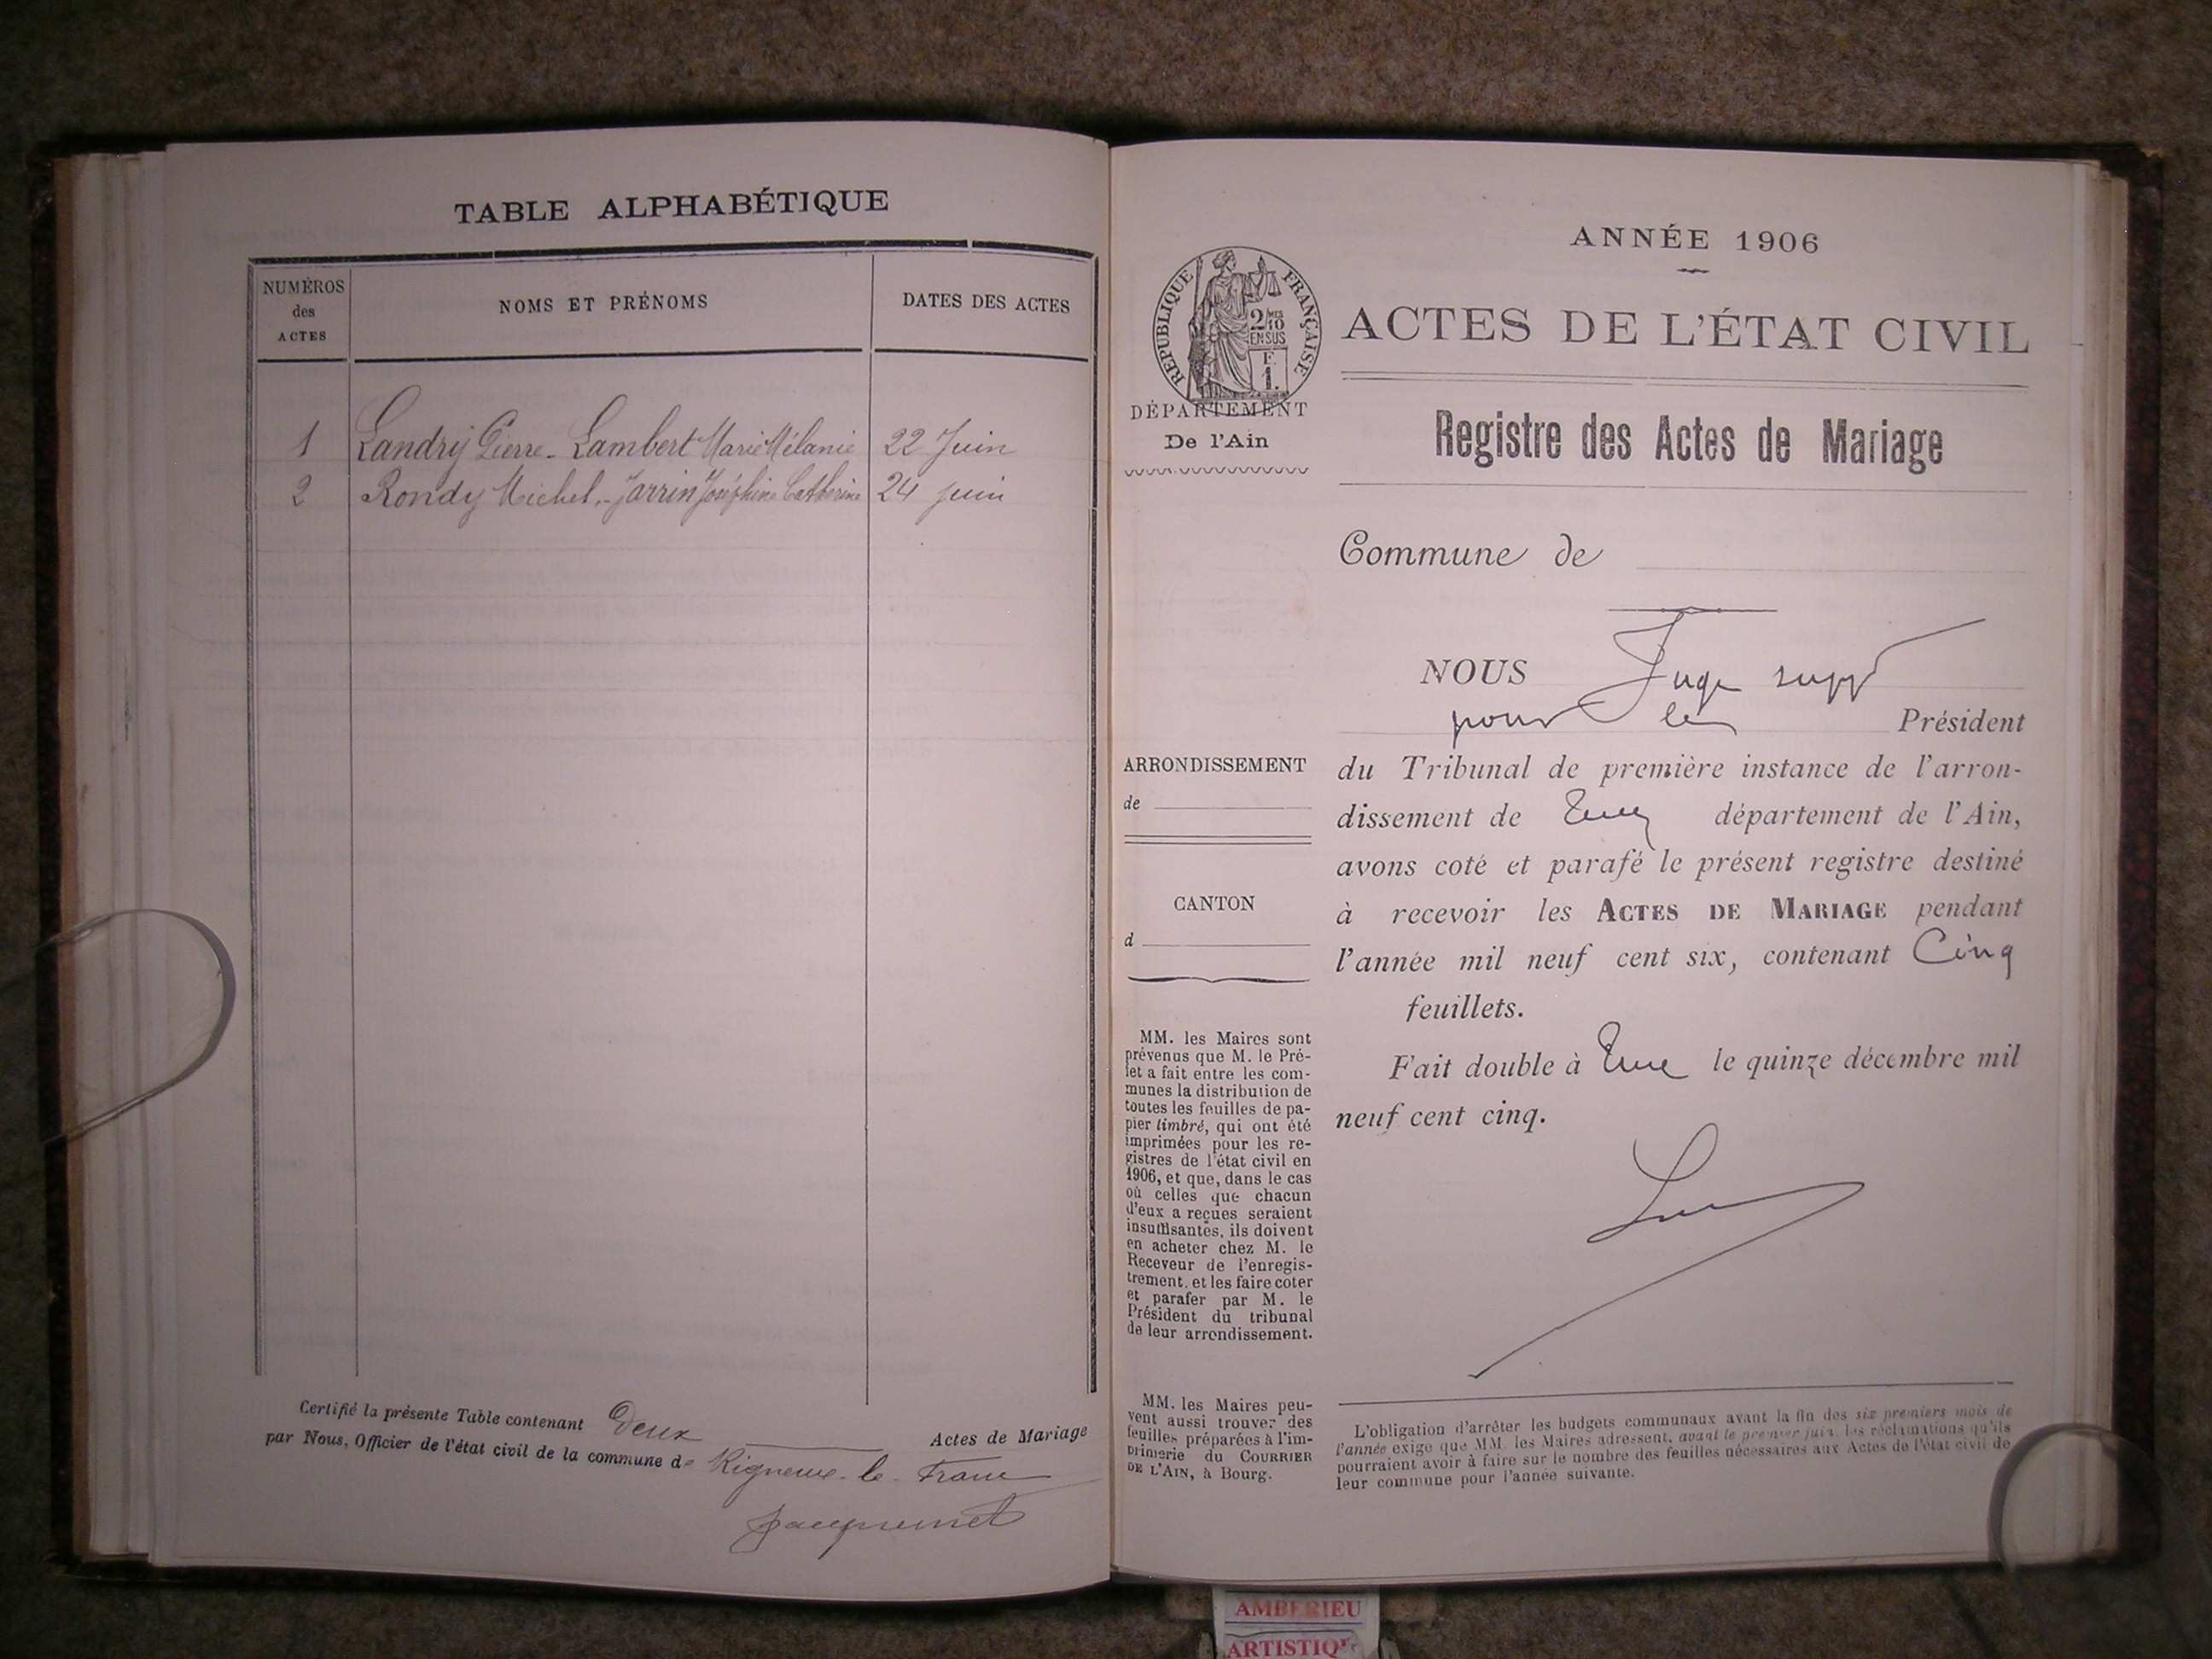 TABLE ALPHABÉTIQUE
NUMÉROS
des
ACTES
NOMS ET PRÉNOMS
DATES DES ACTES
1 Landry Pierre - Lambert Marie Mélanie 22 Juin
2 Rondy Michel - Jarrin Joséphine Catherine 24 juin
Certifié la présente Table contenant Deux Actes de Mariage
par Nous, Officier de l'état civil de la commune de Rigneux-le-Franc
ANNÉE 1906
RÉPUBLIQUE FRANÇAISE
2/10
EN SUS
F.
1.
ACTES DE L'ÉTAT CIVIL
DÉPARTEMENT
De l'Ain
Registre des Actes de Mariage
Commune de
NOUS Juge supp
pour le Président
ARRONDISSEMENT
de
CANTON
d
du Tribunal de première instance de l'arron-
dissement de département de l'Ain,
avons coté et parafé le présent registre destiné
à recevoir les ACTES DE MARIAGE pendant
l'année mil neuf cent six, contenant Cinq
feuillets.
Fait double à le quinze décembre mil
neuf cent cinq.
MM. les Maires sont
prévenus que M. le Pré-
fet a fait entre les com-
munes la distribution de
toutes les feuilles de pa-
pier timbré, qui ont été
imprimées pour les re-
gistres de l'état civil en
1906, et que, dans le cas
où celles que chacun
d'eux a reçues seraient
insuffisantes, ils doivent
en acheter chez M. le
Receveur de l'enregis-
trement, et les faire coter
et parafer par M. le
Président du tribunal
de leur arrondissement.
MM. les Maires peu-
vent aussi trouver des
feuilles préparées à l'im-
primerie du COURRIER
DE L'AIN, à Bourg.
L'obligation d'arrêter les budgets communaux avant la fin des six premiers mois de
l'année exige que MM. les Maires adressent, avant le premier juin, les réclamations qu'ils
pourraient avoir à faire sur le nombre des feuilles nécessaires aux Actes de l'état civil de
leur commune pour l'année suivante.
AMBERIEU
ARTISTIQ